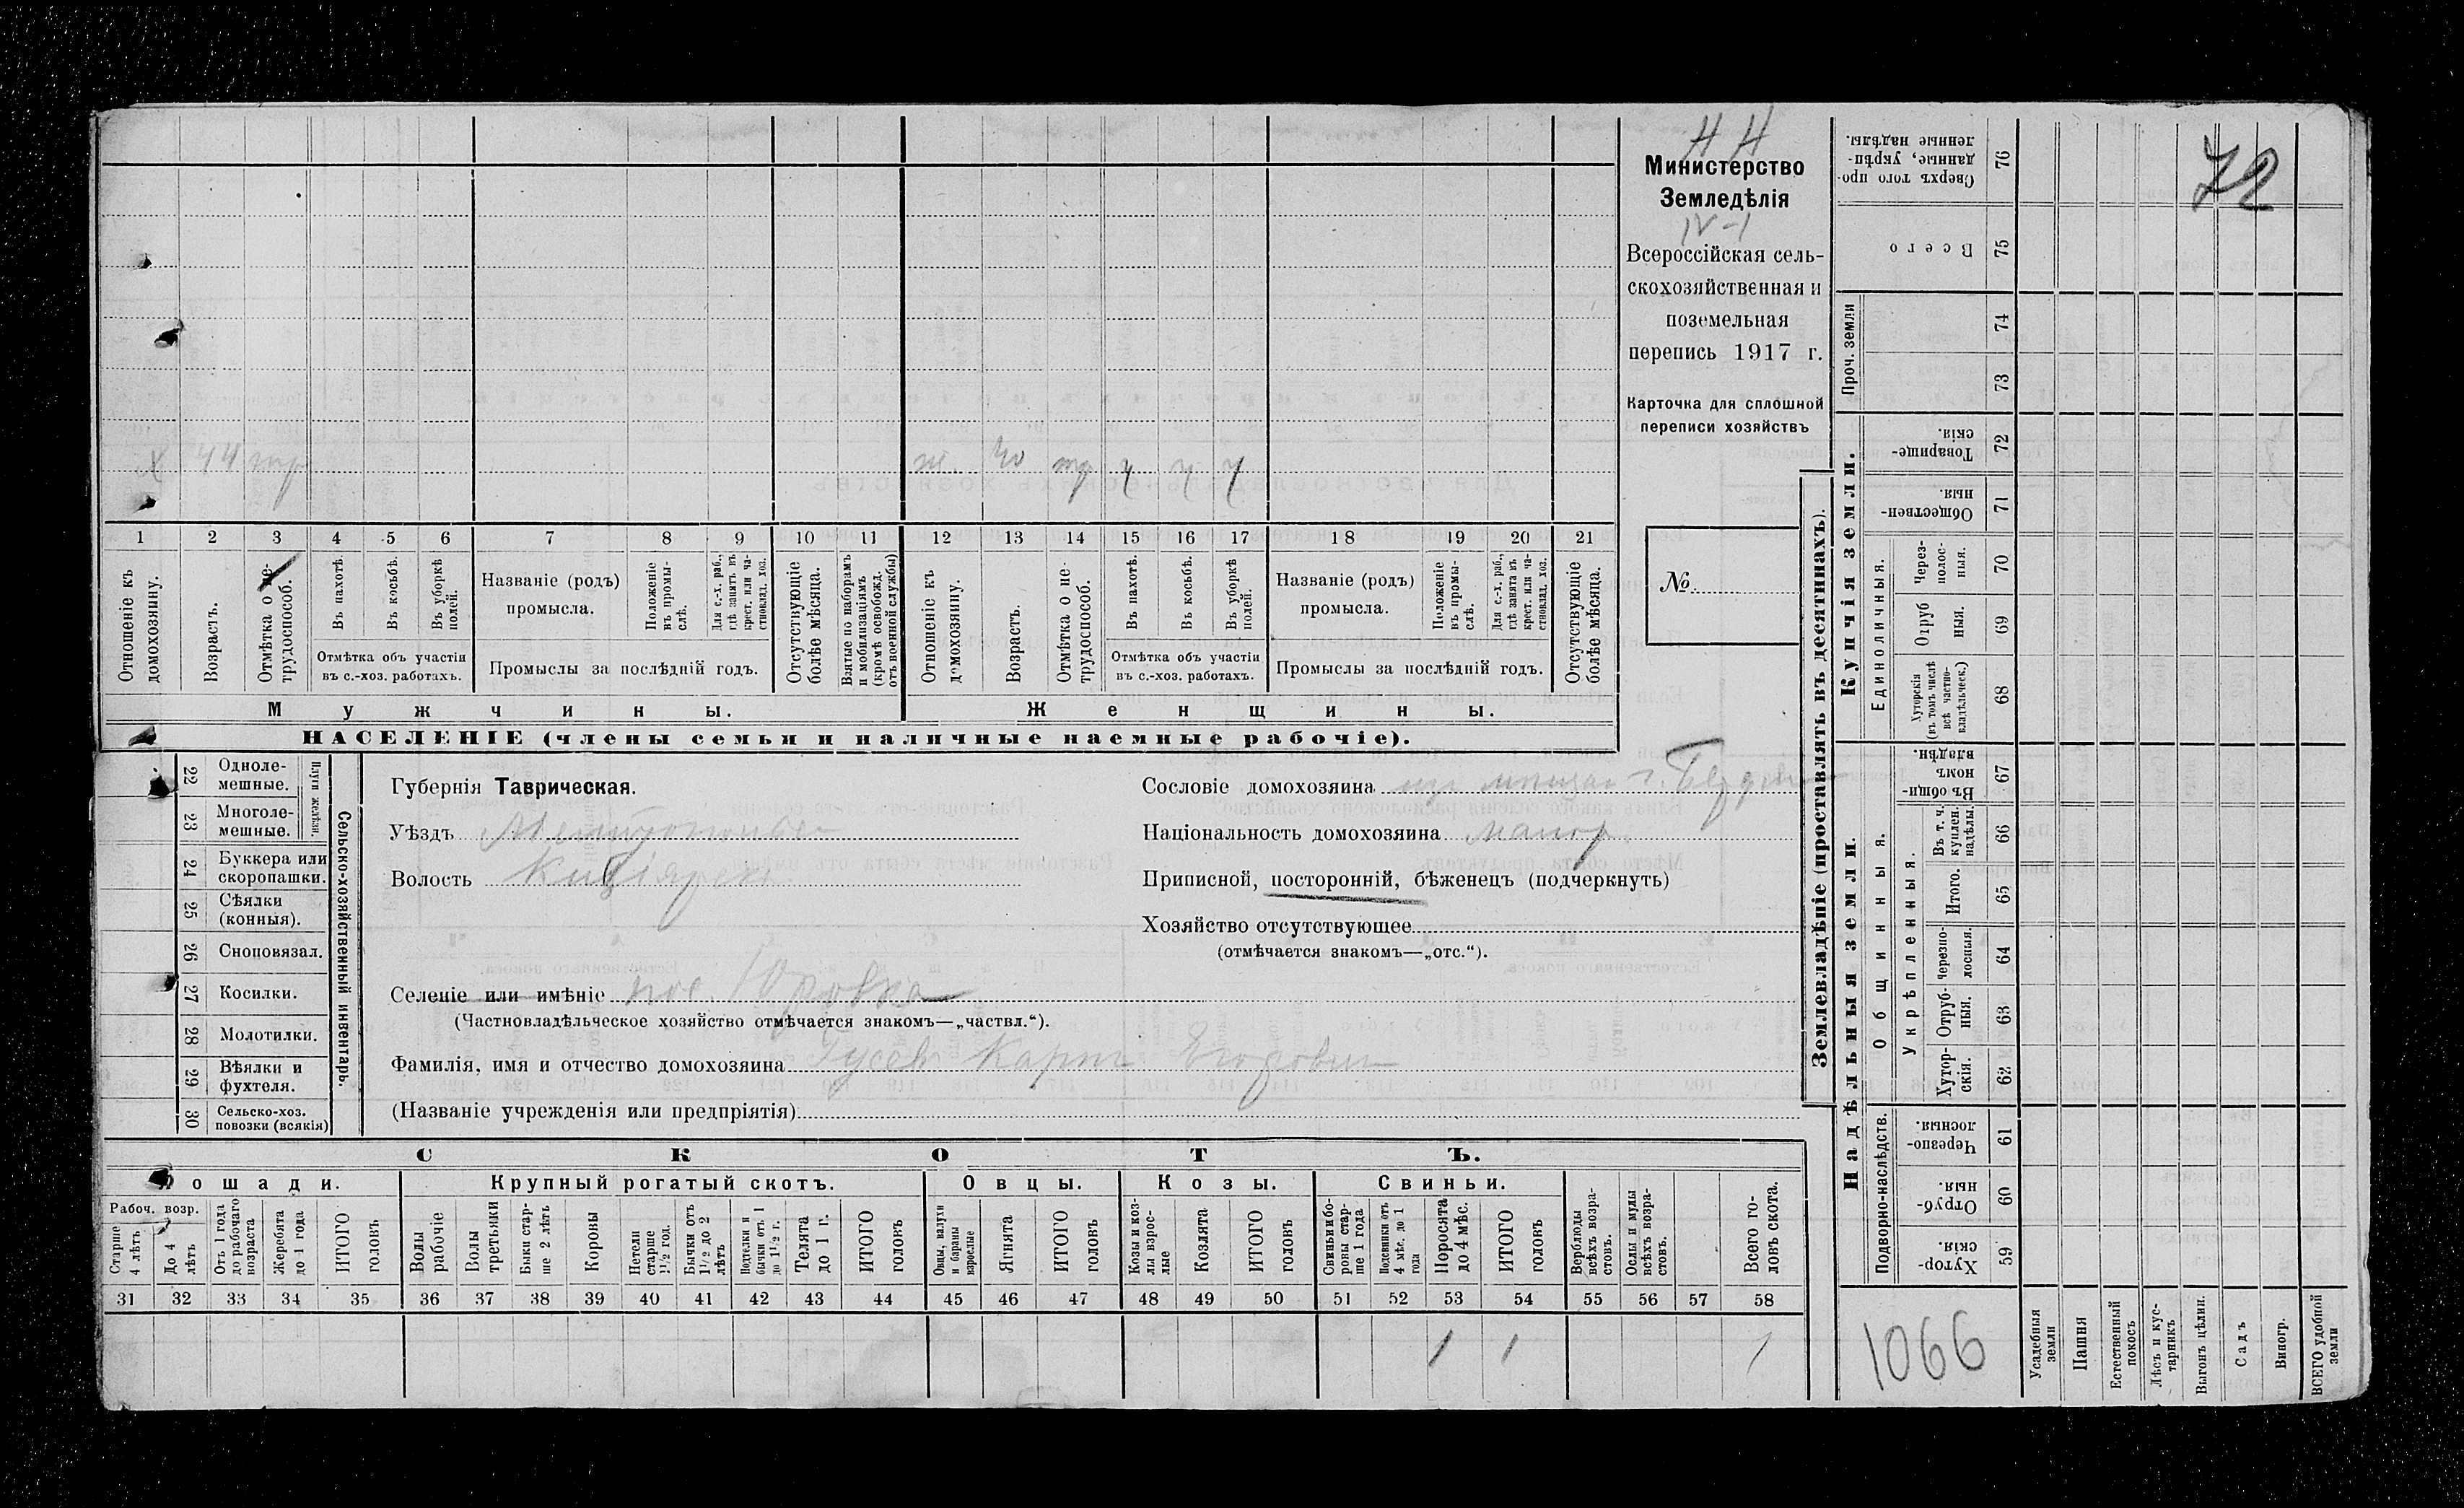 44
Министерство
Земледѣлія
IV-1
Всероссійская сель-
скохозяйственная и
поземельная
перепись 1917 г.
Карточка для сплошной
переписи хозяйствъ
№
72
х 44 тр
ж. 40 тр ч ч ч
1 2 3 4 5 6 7 8 9 10 11 12 13 14 15 16 17 18 19 20 21
Отношеніе къ
домохозяину.
Возрастъ.
Отмѣтка о не-
трудоспособ.
Въ пахотѣ.
Въ косьбѣ.
Въ уборкѣ
полей.
Отмѣтка объ участіи
въ с.-хоз. работахъ.
Названіе (родъ)
промысла.
Положеніе
въ промы-
слѣ.
Для с.-х. раб.,
гдѣ занятъ въ
крест. или ча-
стновлад. хоз.
Промыслы за послѣдній годъ.
Отсутствующіе
болѣе мѣсяца.
Взятые по наборамъ
и мобилизаціямъ
(кромѣ освобожд.
отъ военной службы)
Отношеніе къ
домохозяину.
Возрастъ.
Отмѣтка о не-
трудоспособ.
Въ пахотѣ.
Въ косьбѣ.
Въ уборкѣ
полей.
Отмѣтка объ участіи
въ с.-хоз. работахъ.
Названіе (родъ)
промысла.
Положеніе
въ промы-
слѣ.
Для с.-х. раб.,
гдѣ занята въ
крест. или ча-
стновлад. хоз.
Промыслы за послѣдній годъ.
Отсутствующіе
болѣе мѣсяца.
Мужчины.
Женщины.
НАСЕЛЕНІЕ (члены семьи и наличные наемные рабочіе).
Сельско-хозяйственный инвентарь.
Плуги желѣзн.
22 Одноле-
мешные.
23 Многоле-
мешные.
24 Буккера или
скоропашки.
25 Сѣялки
(конныя).
26 Сноповязал.
27 Косилки.
28 Молотилки.
29 Вѣялки и
фухтеля.
30 Сельско-хоз.
повозки (всякія)
Губернія Таврическая.
Уѣздъ
Волость
Селеніе или имѣніе пос. Юровка
(Частновладѣльческое хозяйство отмѣчается знакомъ—„частвл.“).
Фамилія, имя и отчество домохозяина Гусев Карп Егорович
(Названіе учрежденія или предпріятія)
Сословіе домохозяина из г.
Національность домохозяина малор.
Приписной, посторонній, бѣженецъ (подчеркнуть)
Хозяйство отсутствующее
(отмѣчается знакомъ—„отс.“).
СКОТЪ.
Лошади.
Крупный рогатый скотъ.
Овцы.
Козы.
Свиньи.
Рабоч. возр.
Старше
4 лѣтъ
До 4
лѣтъ
Отъ 1 года
до рабочаго
возраста
Жеребята
до 1 года
ИТОГО
головъ
Волы
рабочіе
Волы
третьяки
Быки стар-
ше 2 лѣтъ
Коровы
Нетели
старше
1½ год.
Бычки отъ
1½ до 2
лѣтъ
Подтелки и
бычки отъ 1
до 1½ г.
Телята
до 1 г.
ИТОГО
головъ
Овцы, валухи
и бараны
взрослые
Ягнята
ИТОГО
головъ
Козы и коз-
лы взрос-
лые
Козлята
ИТОГО
головъ
Свиньи и бо-
ровы стар-
ше 1 года
Подсвинки отъ
4 мѣс. до 1
года
Поросята
до 4 мѣс.
ИТОГО
головъ
Верблюды
всѣхъ возра-
стовъ.
Ослы и мулы
всѣхъ возра-
стовъ.
Всего го-
ловъ скота.
31 32 33 34 35 36 37 38 39 40 41 42 43 44 45 46 47 48 49 50 51 52 53 54 55 56 57 58
1 1 1
Землевладѣніе (проставлять въ десятинахъ).
Купчія земли.
Надѣльныя земли.
Сверхъ того про-
данные, укрѣп-
ленные надѣлы.
76
Всего
75
Проч. земли
74
73
Товарище-
скія.
72
Обществен-
ныя.
71
Единоличныя.
Через-
полос-
ныя.
70
Отруб
ныя.
69
Хуторскія
(въ томъ числѣ
всѣ частно-
владѣльческ.)
68
Общинныя.
Въ общи-
номъ
владѣн.
67
Укрѣпленныя.
Въ т. ч.
куплен.
надѣлы.
66
Итого.
65
Черезпо-
лосныя.
64
Отруб-
ныя.
63
Хутор-
скія.
62
Подворно-наслѣдств.
Черезпо-
лосныя.
61
Отруб-
ныя.
60
Хутор-
скія.
59
1066
Усадебныя
земли
Пашня
Естественный
покосъ
Лѣсъ и кус-
тарникъ
Выгонъ цѣлин.
Садъ
Виногр.
ВСЕГО удобной
земли